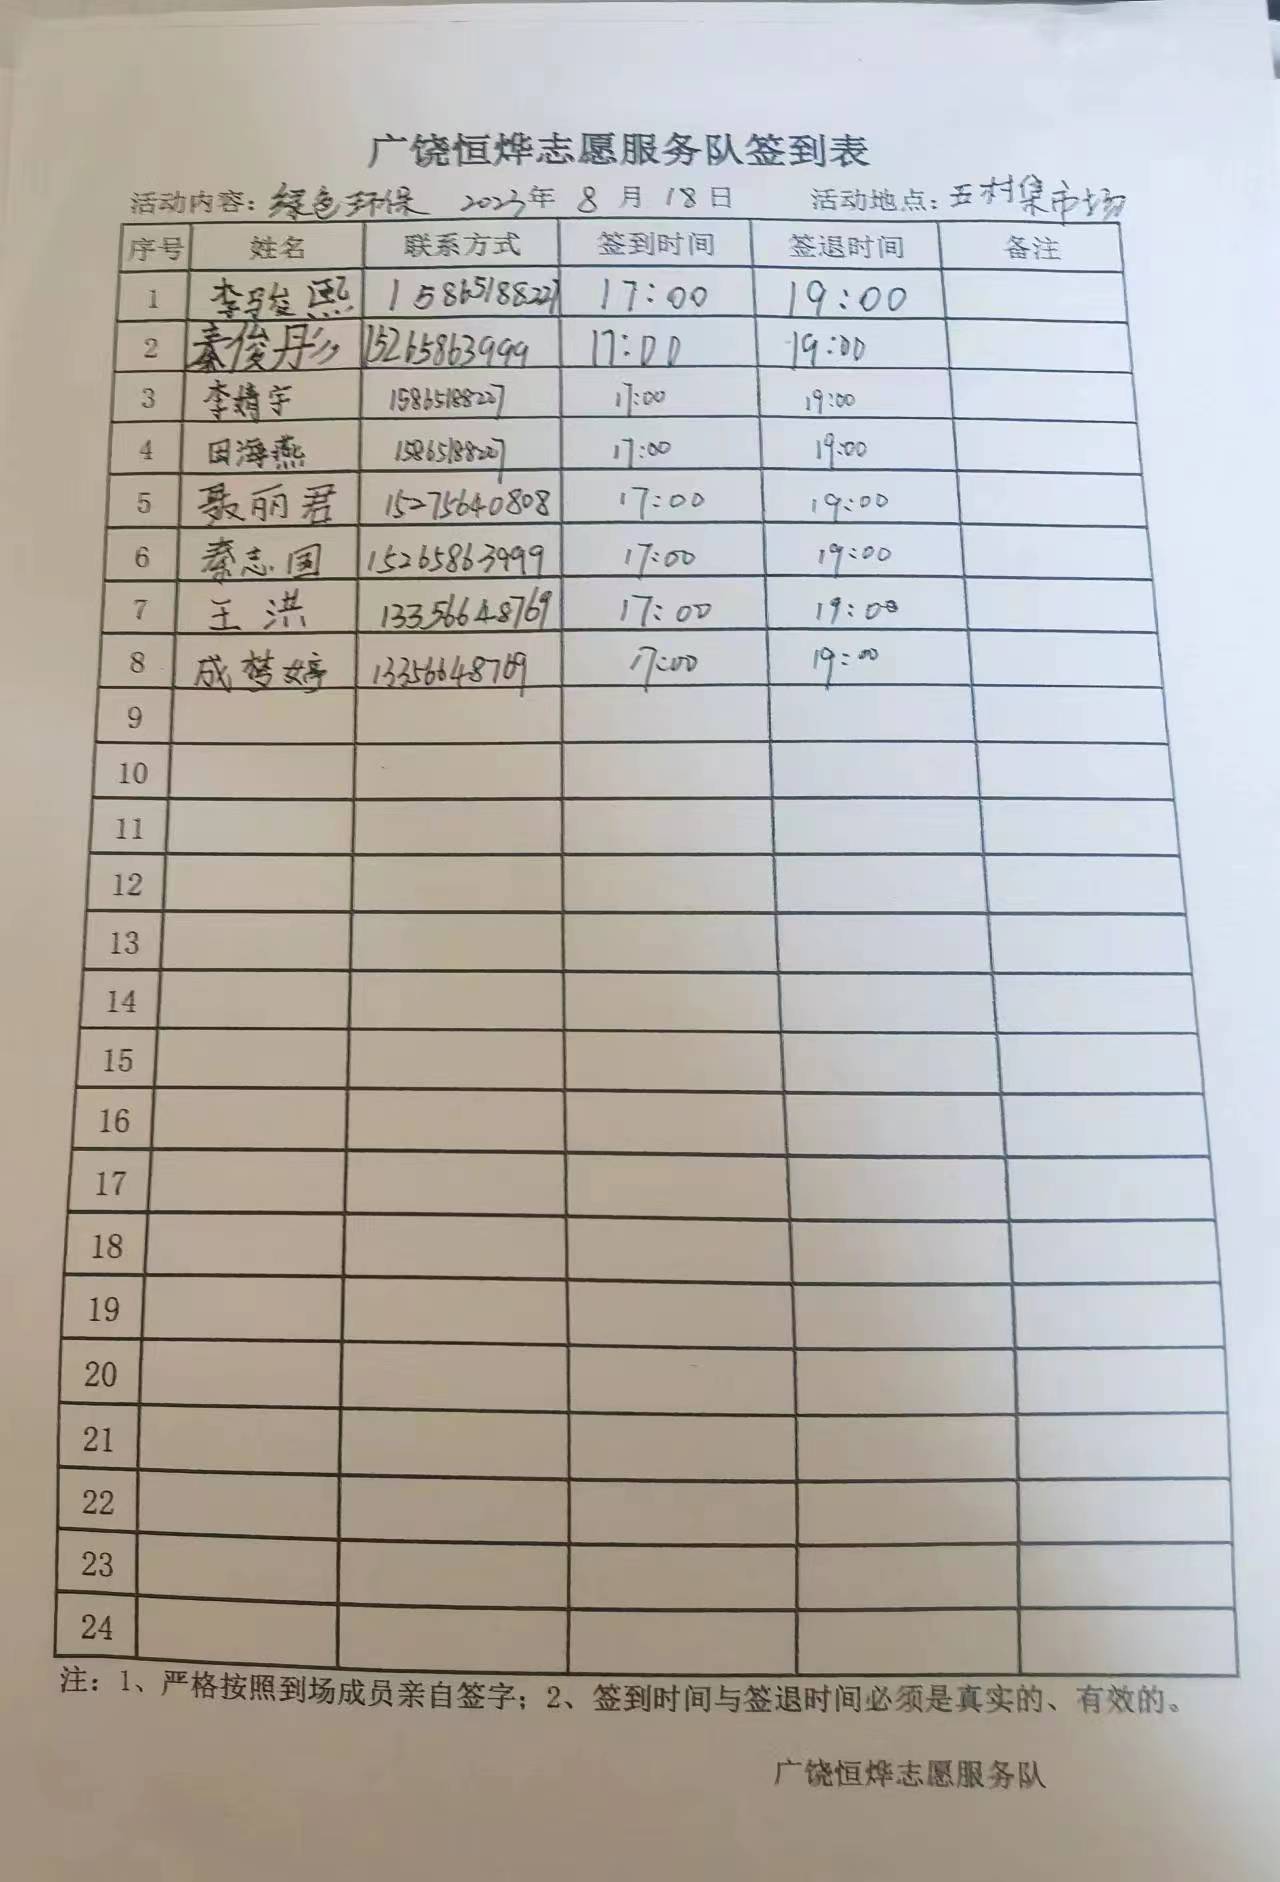 广饶恒烨志愿服务队签到表
活动内容：绿色环保 2023年 8 月 18日 活动地点：五村集市场
序号 姓名 联系方式 签到时间 签退时间 备注
1 李骏熙 15865188227 17:00 19:00
2 秦俊丹 15265863999 17:00 19:00
3 李婧宇 15865188227 17:00 19:00
4 田海燕 15865188227 17:00 19:00
5 聂丽君 15275640808 17:00 19:00
6 秦志国 15265863999 17:00 19:00
7 王洪 13356648769 17:00 19:00
8 成梦婷 13356648769 17:00 19:00
9
10
11
12
13
14
15
16
17
18
19
20
21
22
23
24
注：1、严格按照到场成员亲自签字；2、签到时间与签退时间必须是真实的、有效的。
广饶恒烨志愿服务队